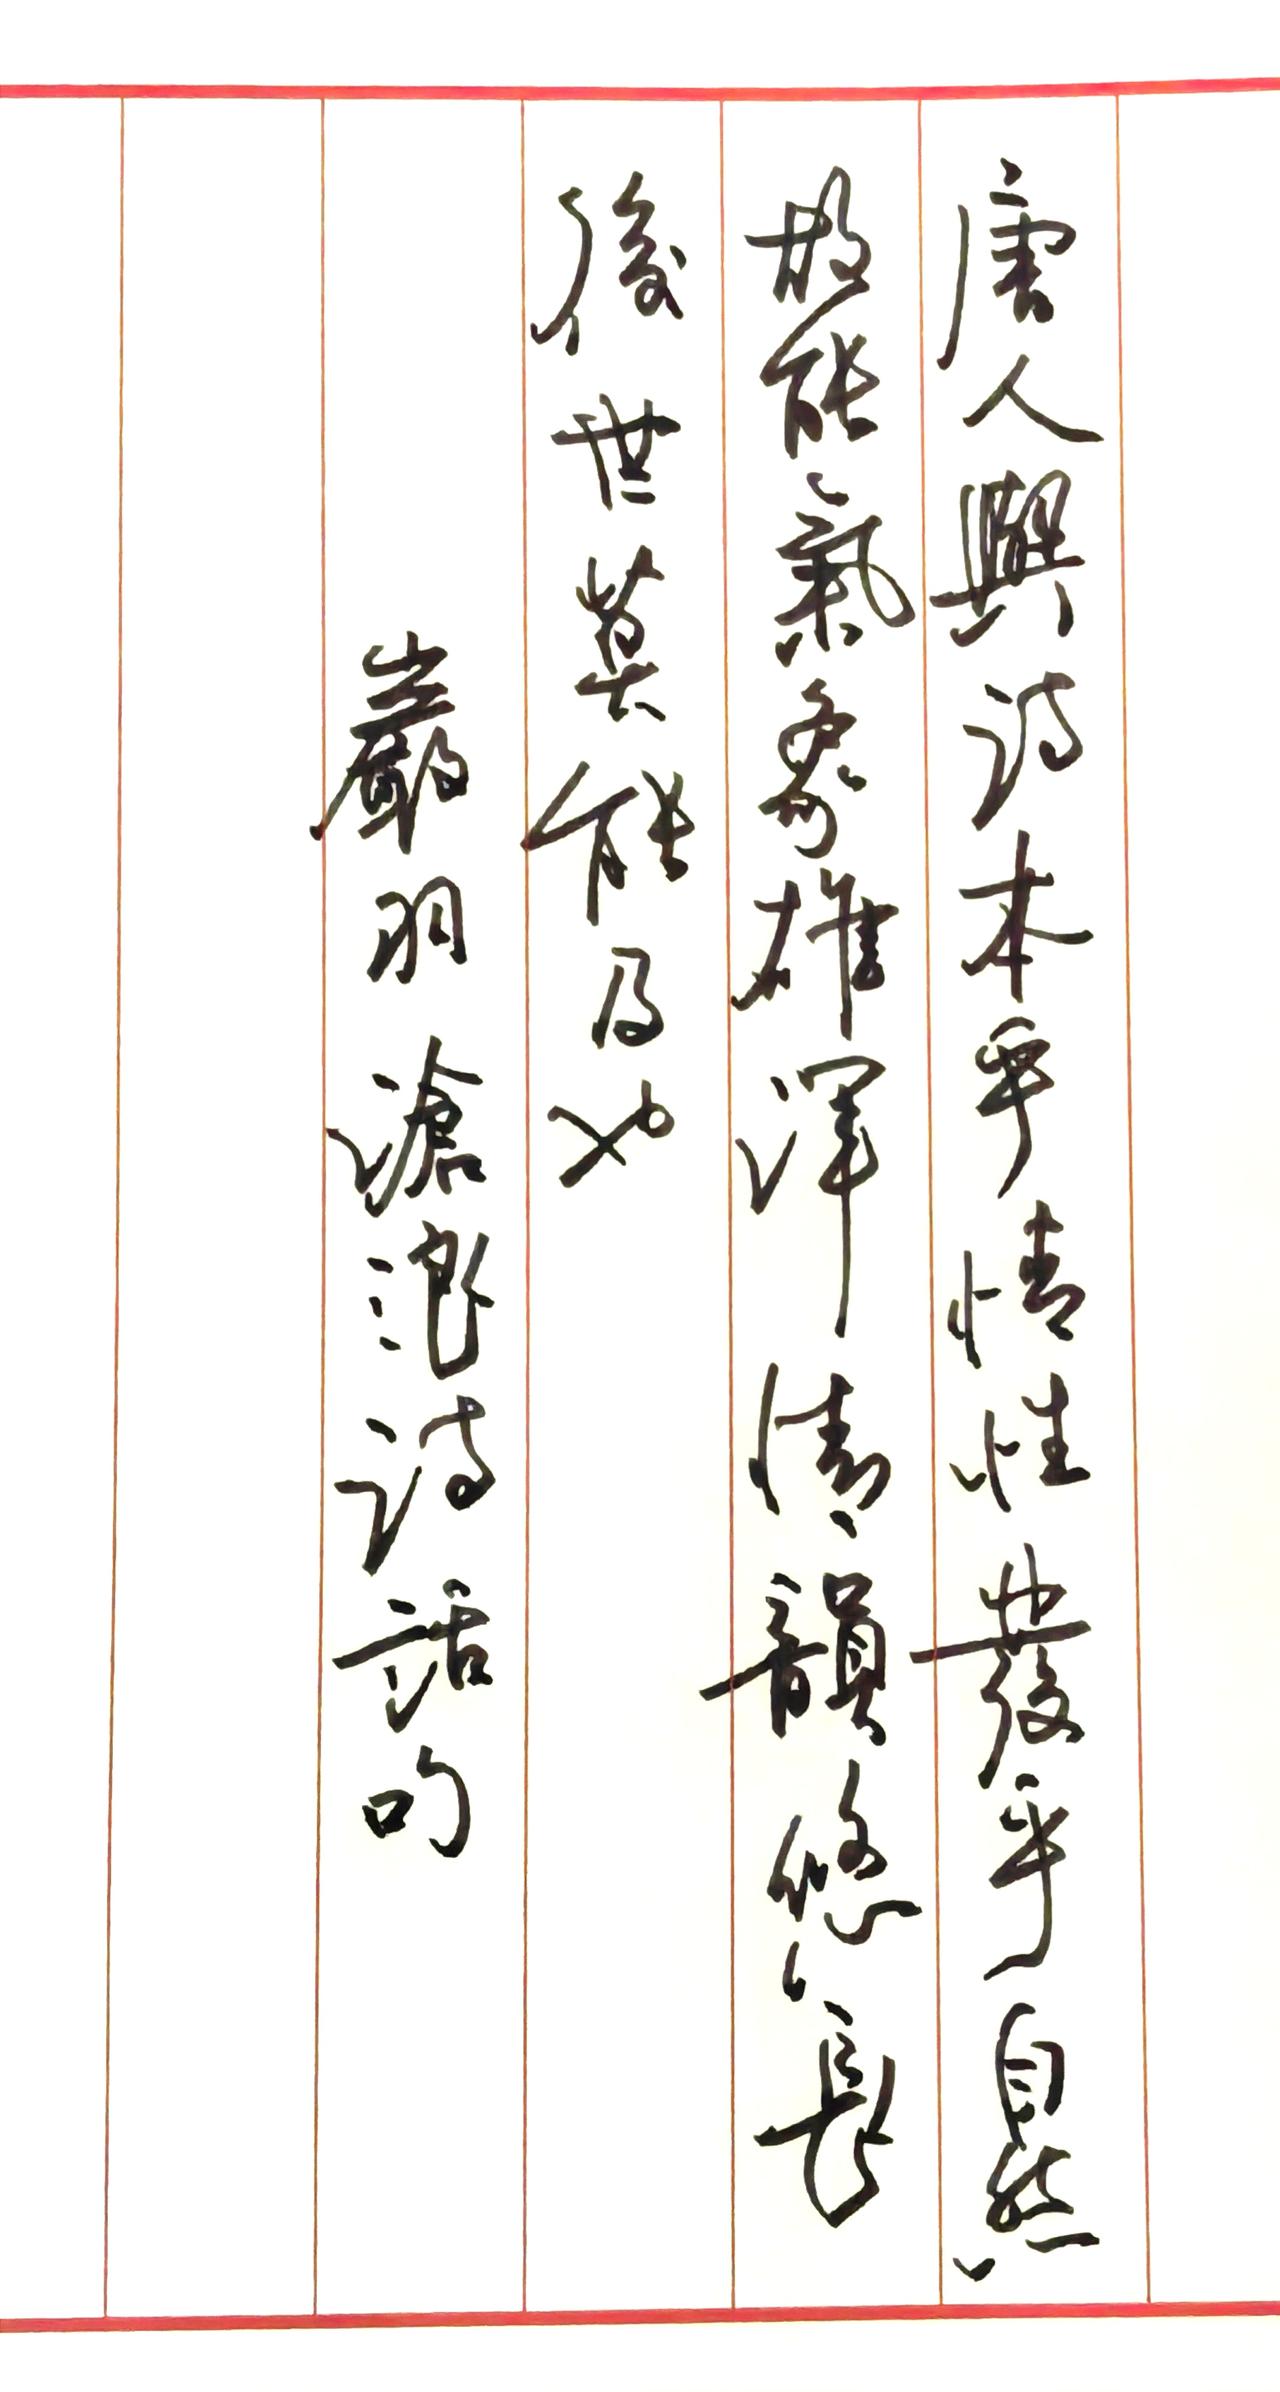 唐人興詩本乎情性發乎自然
故能氣象雄渾情韻悠長
後世莫能及也
嚴羽滄浪詩話句